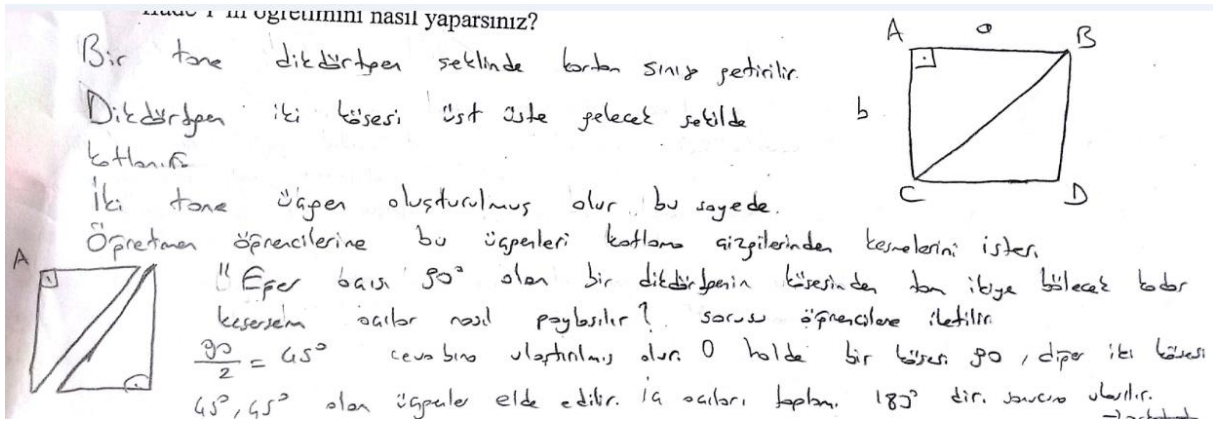 öğretimini nasıl yaparsınız?
Bir tane dikdörtgen şeklinde karton sınıfa getirilir.
Dikdörtgen iki köşesi üst üste gelecek şekilde
katlanır.
İki tane üçgen oluşturulmuş olur bu sayede.
Öğretmen öğrencilerine bu üçgenleri katlama çizgilerinden kesmelerini ister.
"Eğer açısı 90° olan bir dikdörtgenin köşesinden tam ikiye bölecek kadar
kesersem açılar nasıl paylaşılır? sorusu öğrencilere iletilir.
90/2 = 45° cevabına ulaştırılmış olur. O halde bir köşesi 90, diğer iki köşesi
45°, 45° olan üçgenler elde edilir. İç açıları toplamı 180° dir. sonucuna ulaşılır.
A
a
B
b
C
D
A